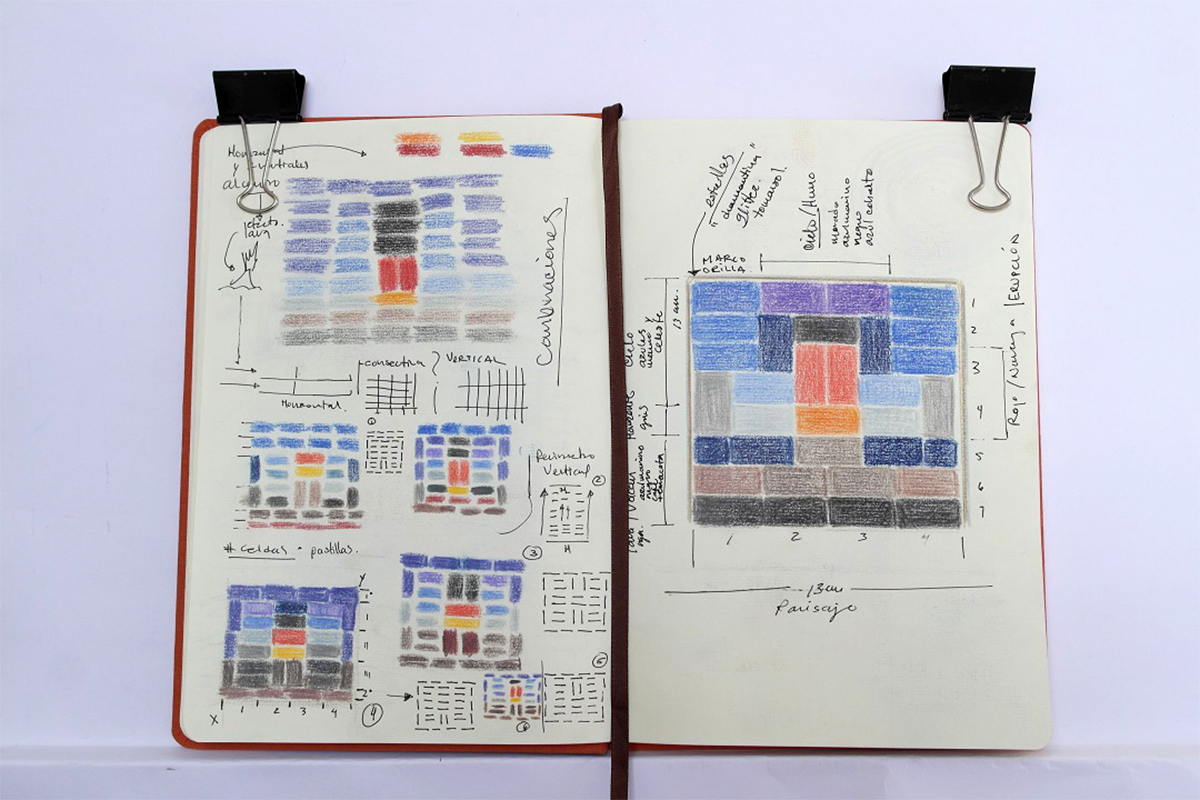 Horizontal
y
alguno
lava
Combinaciones
VERTICAL
Horizontal.
①
Perimetro
Vertical
②
H
H
# Celdas · pastillas.
③
Y
X
1
2
3
4
④
⑤
⑥
estrellas
"diamantina"
glitter.
MARCO
ORILLA
Cielo/Humo
morado
azul marino
negro
azul cobalto
13 cm.
Cielo
azules
marino y
celeste
Horizonte
gris
azul marino
negro
café
terracota
1
2
3
4
5
6
7
Rojo/Naranja/ERUPCIÓN
1
2
3
4
13 cm
Paisaje